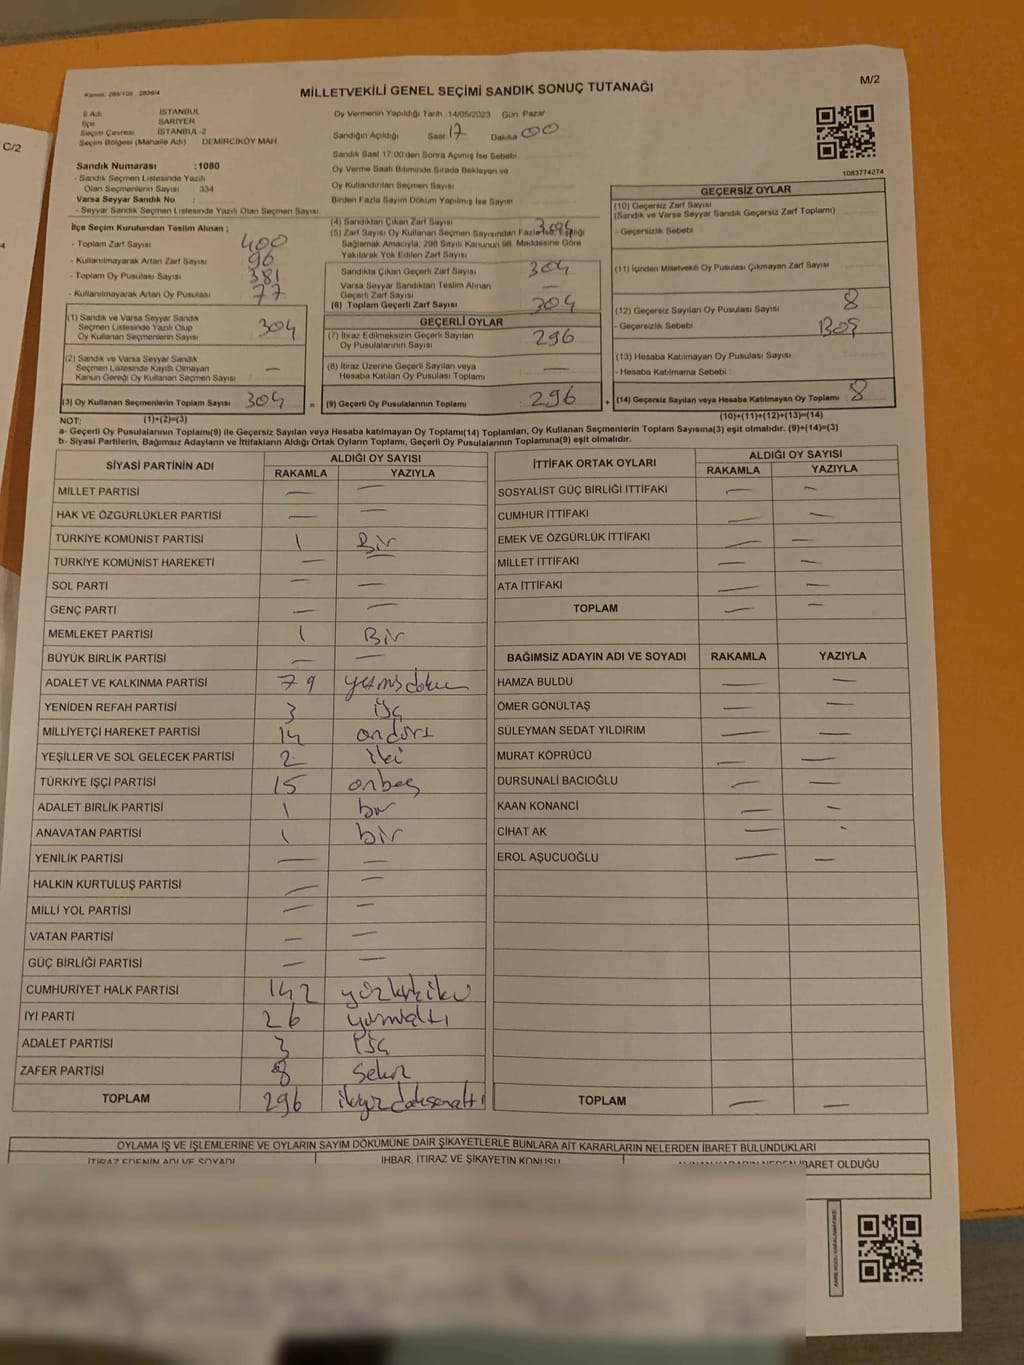 C/2
M/2
Kanun: 298/105 , 2839/4
MİLLETVEKİLİ GENEL SEÇİMİ SANDIK SONUÇ TUTANAĞI
İl Adı İSTANBUL
İlçe SARIYER
Seçim Çevresi İSTANBUL-2
Seçim Bölgesi (Mahalle Adı) DEMİRCİKÖY MAH
Sandık Numarası :1080
- Sandık Seçmen Listesinde Yazılı
Olan Seçmenlerin Sayısı 334
Varsa Seyyar Sandık No
- Seyyar Sandık Seçmen Listesinde Yazılı Olan Seçmen Sayısı
İlçe Seçim Kurulundan Teslim Alınan ;
- Toplam Zarf Sayısı 400
- Kullanılmayarak Artan Zarf Sayısı 96
- Toplam Oy Pusulası Sayısı 381
- Kullanılmayarak Artan Oy Pusulası 77
(1) Sandık ve Varsa Seyyar Sandık
Seçmen Listesinde Yazılı Olup
Oy Kullanan Seçmenlerin Sayısı 304
(2) Sandık ve Varsa Seyyar Sandık
Seçmen Listesinde Kayıtlı Olmayan
Kanun Gereği Oy Kullanan Seçmen Sayısı —
(3) Oy Kullanan Seçmenlerin Toplam Sayısı 304 =
Oy Vermenin Yapıldığı Tarih :14/05/2023 Gün: Pazar
Sandığın Açıldığı Saat: 17 Dakika 00
Sandık Saat 17.00'den Sonra Açılmış İse Sebebi
Oy Verme Saati Bitiminde Sırada Bekleyen ve
Oy Kullandırılan Seçmen Sayısı
Birden Fazla Sayım Döküm Yapılmış İse Sayısı
(4) Sandıktan Çıkan Zarf Sayısı 304
(5) Zarf Sayısı Oy Kullanan Seçmen Sayısından Fazla İse, Eşitliği
Sağlamak Amacıyla, 298 Sayılı Kanunun 98. Maddesine Göre
Yakılarak Yok Edilen Zarf Sayısı
Sandıkta Çıkan Geçerli Zarf Sayısı 304
Varsa Seyyar Sandıktan Teslim Alınan
Geçerli Zarf Sayısı —
(6) Toplam Geçerli Zarf Sayısı 304
GEÇERLİ OYLAR
(7) İtiraz Edilmeksizin Geçerli Sayılan
Oy Pusulalarının Sayısı 296
(8) İtiraz Üzerine Geçerli Sayılan veya
Hesaba Katılan Oy Pusulası Toplamı —
(9) Geçerli Oy Pusulalarının Toplamı 296 +
1083774274
GEÇERSİZ OYLAR
(10) Geçersiz Zarf Sayısı
(Sandık ve Varsa Seyyar Sandık Geçersiz Zarf Toplamı)
- Geçersizlik Sebebi
(11) İçinden Milletvekili Oy Pusulası Çıkmayan Zarf Sayısı
(12) Geçersiz Sayılan Oy Pusulası Sayısı 8
- Geçersizlik Sebebi BOŞ
(13) Hesaba Katılmayan Oy Pusulası Sayısı
- Hesaba Katılmama Sebebi
(14) Geçersiz Sayılan veya Hesaba Katılmayan Oy Toplamı 8
NOT: (1)+(2)=(3) (10)+(11)+(12)+(13)=(14)
a- Geçerli Oy Pusulalarının Toplamı(9) ile Geçersiz Sayılan veya Hesaba katılmayan Oy Toplamı(14) Toplamları, Oy Kullanan Seçmenlerin Toplam Sayısına(3) eşit olmalıdır. (9)+(14)=(3)
b- Siyasi Partilerin, Bağımsız Adayların ve İttifakların Aldığı Ortak Oyların Toplamı, Geçerli Oy Pusulalarının Toplamına(9) eşit olmalıdır.
SİYASİ PARTİNİN ADI ALDIĞI OY SAYISI
RAKAMLA YAZIYLA
MİLLET PARTİSİ — —
HAK VE ÖZGÜRLÜKLER PARTİSİ — —
TÜRKİYE KOMÜNİST PARTİSİ 1 Bir
TÜRKİYE KOMÜNİST HAREKETİ —
SOL PARTİ — —
GENÇ PARTİ — —
MEMLEKET PARTİSİ 1 Bir
BÜYÜK BİRLİK PARTİSİ — —
ADALET VE KALKINMA PARTİSİ 79 yetmişdokuz
YENİDEN REFAH PARTİSİ 3 üç
MİLLİYETÇİ HAREKET PARTİSİ 14 ondört
YEŞİLLER VE SOL GELECEK PARTİSİ 2 iki
TÜRKİYE İŞÇİ PARTİSİ 15 onbeş
ADALET BİRLİK PARTİSİ 1 bir
ANAVATAN PARTİSİ 1 bir
YENİLİK PARTİSİ — —
HALKIN KURTULUŞ PARTİSİ — —
MİLLİ YOL PARTİSİ — —
VATAN PARTİSİ — —
GÜÇ BİRLİĞİ PARTİSİ — —
CUMHURİYET HALK PARTİSİ 142 yüzkırkiki
İYİ PARTİ 26 yirmialtı
ADALET PARTİSİ 3 üç
ZAFER PARTİSİ 8 sekiz
TOPLAM 296 ikiyüzdoksanaltı
İTTİFAK ORTAK OYLARI ALDIĞI OY SAYISI
RAKAMLA YAZIYLA
SOSYALİST GÜÇ BİRLİĞİ İTTİFAKI — —
CUMHUR İTTİFAKI — —
EMEK VE ÖZGÜRLÜK İTTİFAKI — —
MİLLET İTTİFAKI — —
ATA İTTİFAKI — —
TOPLAM — —
BAĞIMSIZ ADAYIN ADI VE SOYADI RAKAMLA YAZIYLA
HAMZA BULDU — —
ÖMER GÖNÜLTAŞ — —
SÜLEYMAN SEDAT YILDIRIM — —
MURAT KÖPRÜCÜ — —
DURSUNALİ BACIOĞLU — —
KAAN KONANCİ — —
CİHAT AK — -
EROL AŞUCUOĞLU — —
TOPLAM — —
OYLAMA İŞ VE İŞLEMLERİNE VE OYLARIN SAYIM DÖKÜMÜNE DAİR ŞİKAYETLERLE BUNLARA AİT KARARLARIN NELERDEN İBARET BULUNDUKLARI
İTİRAZ EDENİN ADI VE SOYADI İHBAR, İTİRAZ VE ŞİKAYETİN KONUSU ALINAN KARARIN NEDEN İBARET OLDUĞU